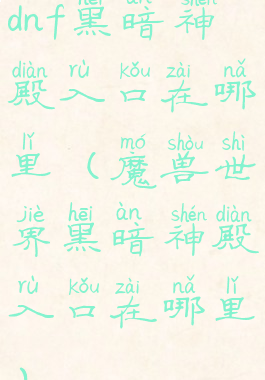 hēi àn shén
dnf黑暗神
diàn rù kǒu zài nǎ
殿入口在哪
lǐ mó shòu shì
里(魔兽世
jiè hēi àn shén diàn
界黑暗神殿
rù kǒu zài nǎ lǐ
入口在哪里
)